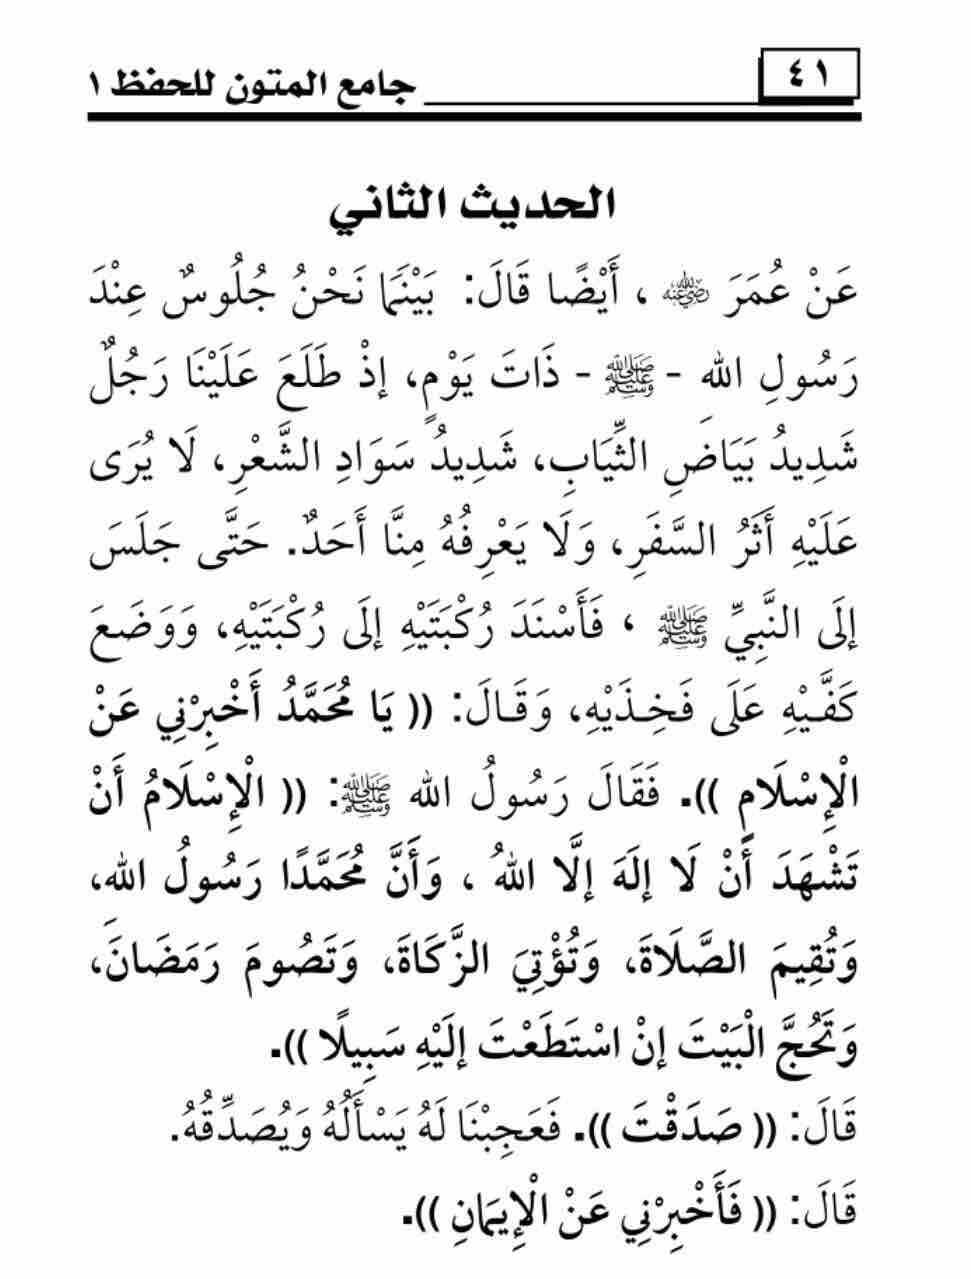 ٤١
جامع المتون للحفظ ١
الحديث الثاني
عَنْ عُمَرَ ﵁ ، أَيْضًا قَالَ: بَيْنَمَا نَحْنُ جُلُوسٌ عِنْدَ
رَسُولِ الله - ﷺ - ذَاتَ يَوْمٍ، إذْ طَلَعَ عَلَيْنَا رَجُلٌ
شَدِيدُ بَيَاضِ الثِّيَابِ، شَدِيدُ سَوَادِ الشَّعْرِ، لَا يُرَى
عَلَيْهِ أَثَرُ السَّفَرِ، وَلَا يَعْرِفُهُ مِنَّا أَحَدٌ. حَتَّى جَلَسَ
إلَى النَّبِيِّ ﷺ ، فَأَسْنَدَ رُكْبَتَيْهِ إلَى رُكْبَتَيْهِ، وَوَضَعَ
كَفَّيْهِ عَلَى فَخِذَيْهِ، وَقَالَ: (( يَا مُحَمَّدُ أَخْبِرْنِي عَنْ
الْإِسْلَامِ )). فَقَالَ رَسُولُ الله ﷺ: (( الْإِسْلَامُ أَنْ
تَشْهَدَ أَنْ لَا إلَهَ إلَّا اللهُ ، وَأَنَّ مُحَمَّدًا رَسُولُ الله،
وَتُقِيمَ الصَّلَاةَ، وَتُؤْتِيَ الزَّكَاةَ، وَتَصُومَ رَمَضَانَ،
وَتَحُجَّ الْبَيْتَ إنْ اسْتَطَعْتَ إلَيْهِ سَبِيلًا )).
قَالَ: (( صَدَقْتَ )). فَعَجِبْنَا لَهُ يَسْأَلُهُ وَيُصَدِّقُهُ.
قَالَ: (( فَأَخْبِرْنِي عَنْ الْإِيمَانِ )).